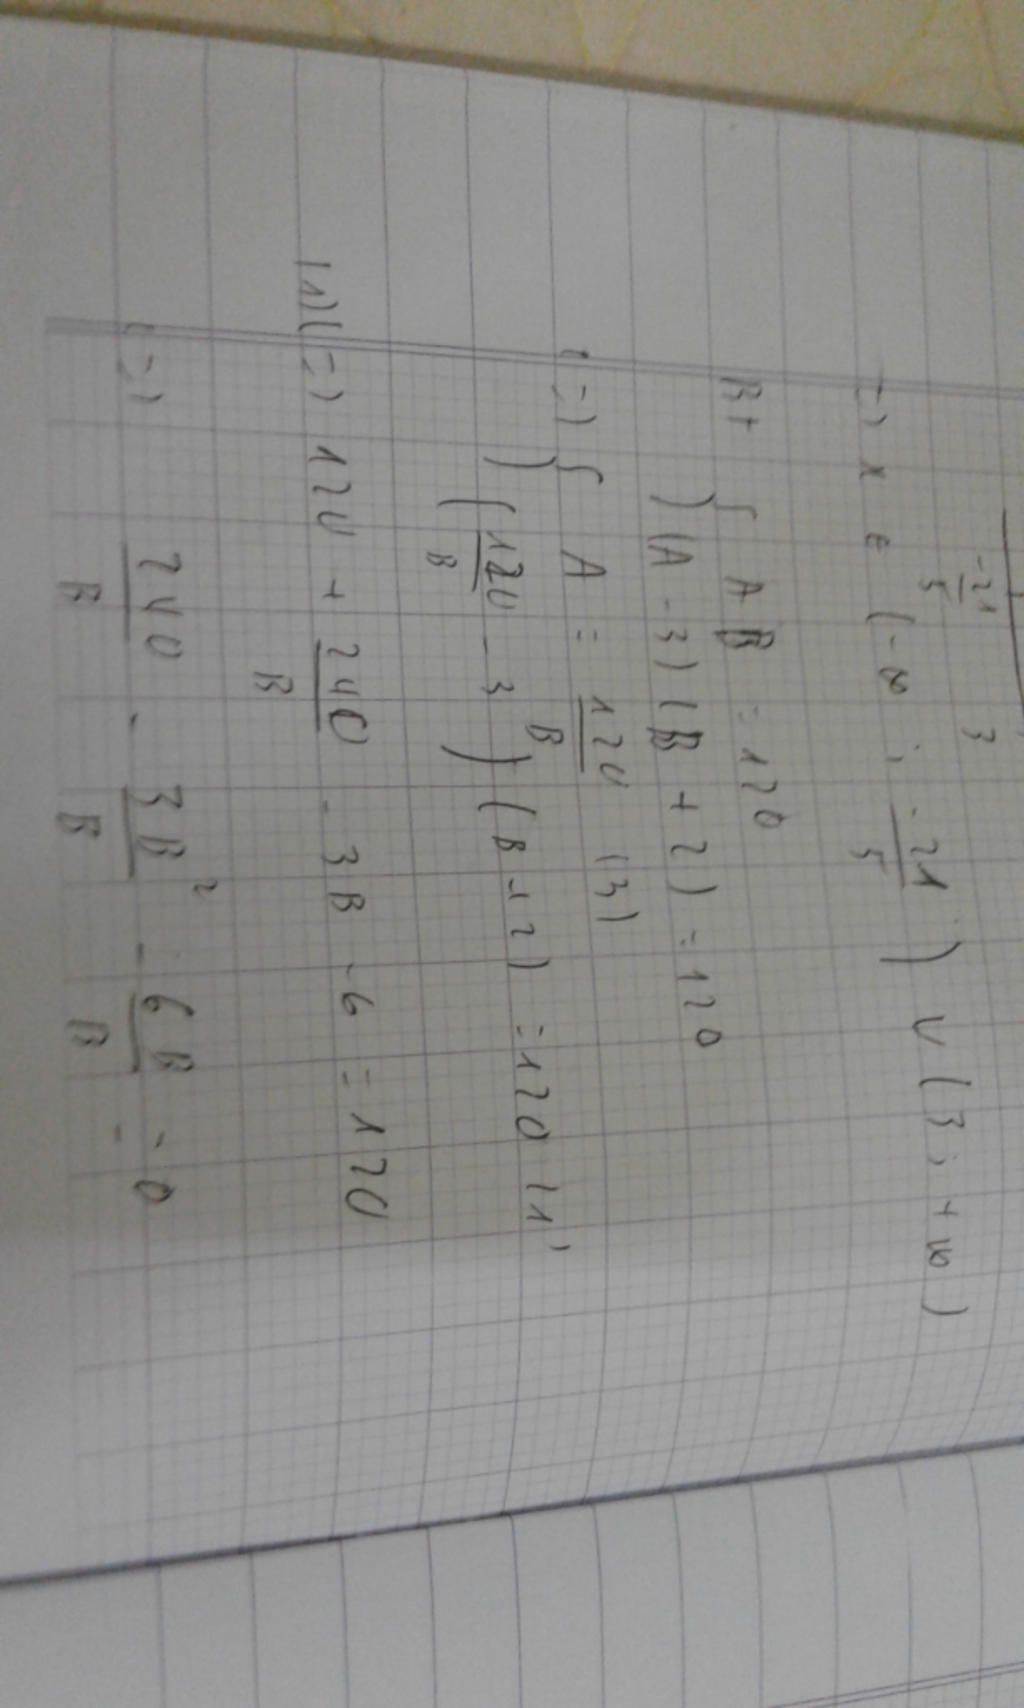 -21/5 3
=> x ∈ (-∞ ; -21/5) ∪ (3 ; +∞)
B+ { AB = 120
(A - 3)(B + 2) = 120
<=> { A = 120/B (3)
(120/B - 3)(B + 2) = 120 (1)
(1) <=> 120 + 240/B - 3B - 6 = 120
<=> 240/B - 3B²/B - 6B/B = 0